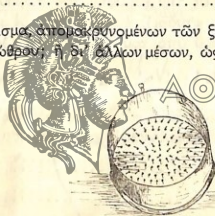 ισμα, ἀπομακρυνομένων τῶν ξ
ώθρου; ἢ δι' ἄλλων μέσων, ὡς
ΑΘ